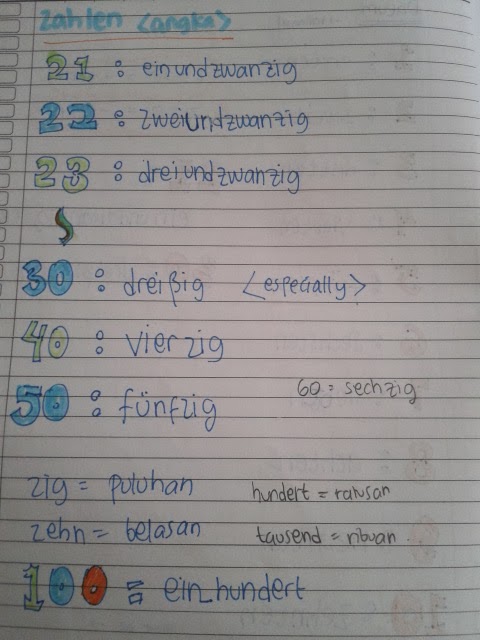 Zahlen <angka>
21 : einundzwanzig
22 : zweiundzwanzig
23 : dreiundzwanzig
30 : dreißig <especially>
40 : vierzig
50 : fünfzig
60 = sechzig
zig = puluhan
hundert = ratusan
zehn = belasan
tausend = ribuan
100 = ein_hundert